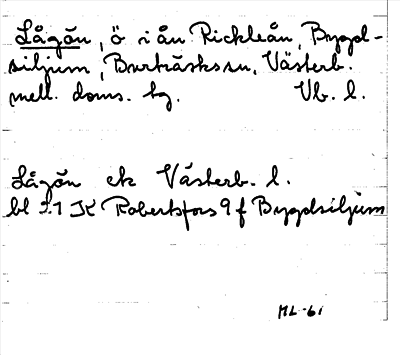 Lågön, ö i ån Rickleån, Bygd-
siljum, Burträsks sn, Västerb.
mell. doms. tg. Vb. l.
Lågön ek Västerb. l.
bl 21 JK Robertsfors 9 f Bygdsiljum
ML -61